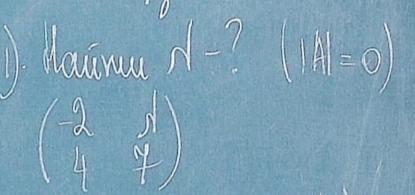 1). Найти λ - ? (|A| = 0)
( -2 λ
4 7 )